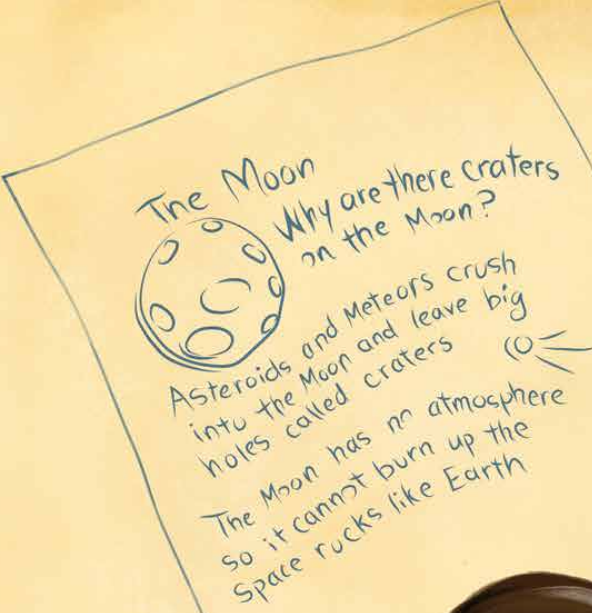 The Moon
Why are there craters
on the Moon?
Asteroids and Meteors crush
into the Moon and leave big
holes called craters
The Moon has no atmosphere
so it cannot burn up the
Space rucks like Earth